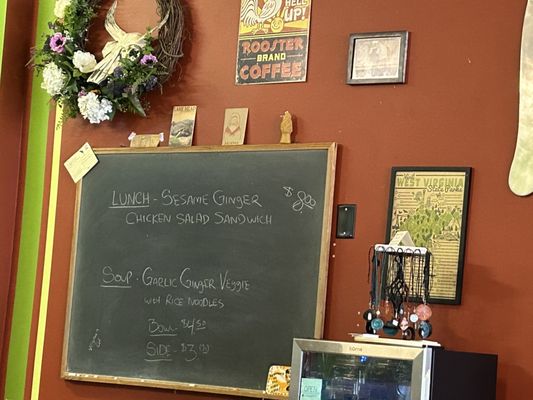 HELLO
UP!
ROOSTER
BRAND
COFFEE
LUNCH - SESAME GINGER $8.00
CHICKEN SALAD SANDWICH
SOUP - GARLIC GINGER VEGGIE
WITH RICE NOODLES
BOWL - $4.50
SIDE - $3.00
WEST VIRGINIA
State Parks
OPEN